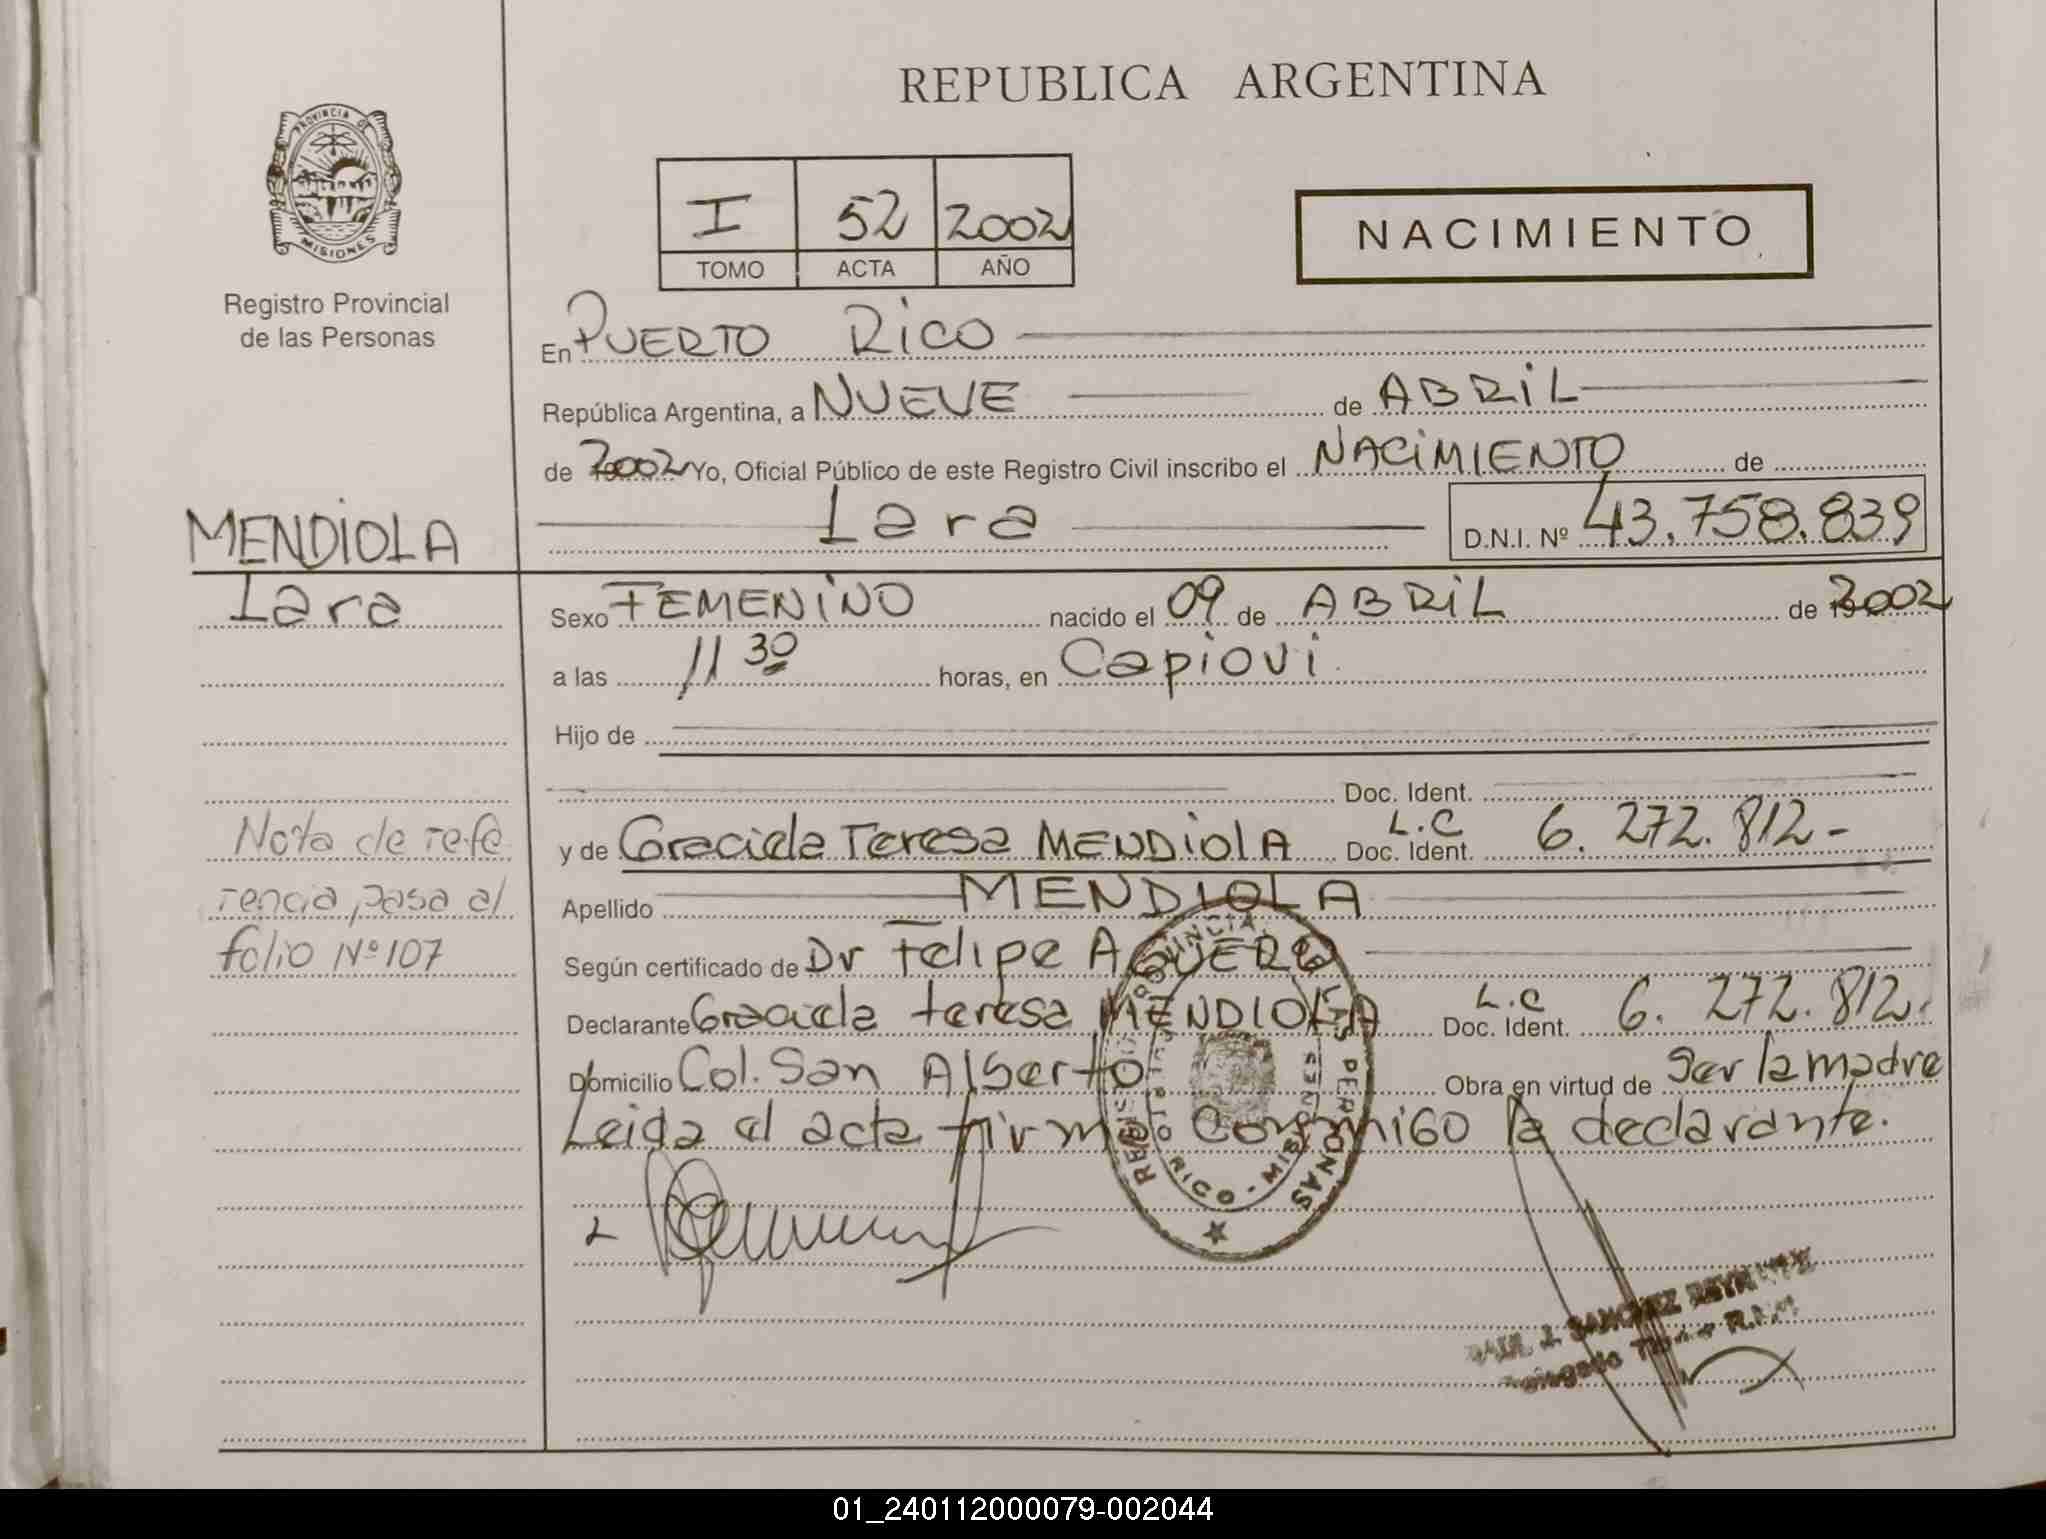 REPUBLICA ARGENTINA
PROVINCIA DE
MISIONES
Registro Provincial
de las Personas
I 52 2002
TOMO ACTA AÑO
NACIMIENTO
En PUERTO RICO
República Argentina, a NUEVE de ABRIL
de 2002 Yo, Oficial Público de este Registro Civil inscribo el NACIMIENTO de
Lara D.N.I. Nº 43.758.839
MENDIOLA
Lara
Sexo FEMENINO nacido el 09 de ABRIL de 2002
a las 11 30 horas, en Capiovi
Hijo de
Doc. Ident.
y de Graciela Teresa MENDIOLA L.C Doc. Ident. 6.272.812-
Apellido MENDIOLA
Según certificado de Dr Felipe AGUERO
Declarante Graciela teresa MENDIOLA L.C Doc. Ident. 6.272.812.
Domicilio Col. San Alberto Obra en virtud de Ser la madre
Leida el acta firma conmigo la declarante.
Nota de refe
rencia, pasa al
folio Nº 107
PROVINCIAL DE LAS PERSONAS
RICO - MISIONES
J. SANCHEZ
01_240112000079-002044